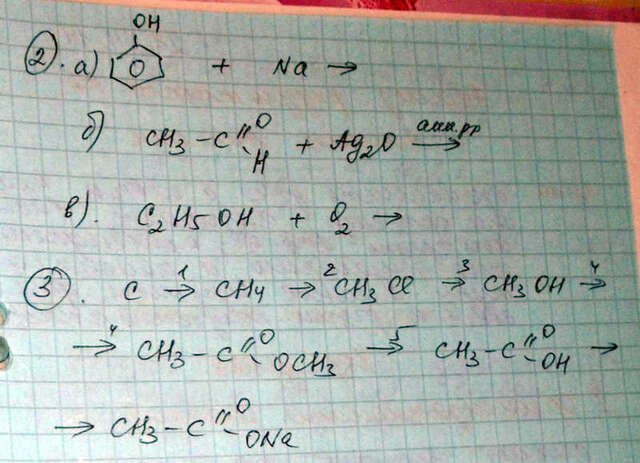 OH
2. а) + Na →
б) CH₃ – C // O \ H + Ag₂O амм.рр →
в). C₂H₅OH + O₂ →
3. C →¹ CH₄ →² CH₃Cl →³ CH₃OH →⁴
→⁴ CH₃ – C // O \ OCH₃ →⁵ CH₃ – C // O \ OH →
→ CH₃ – C // O \ ONa